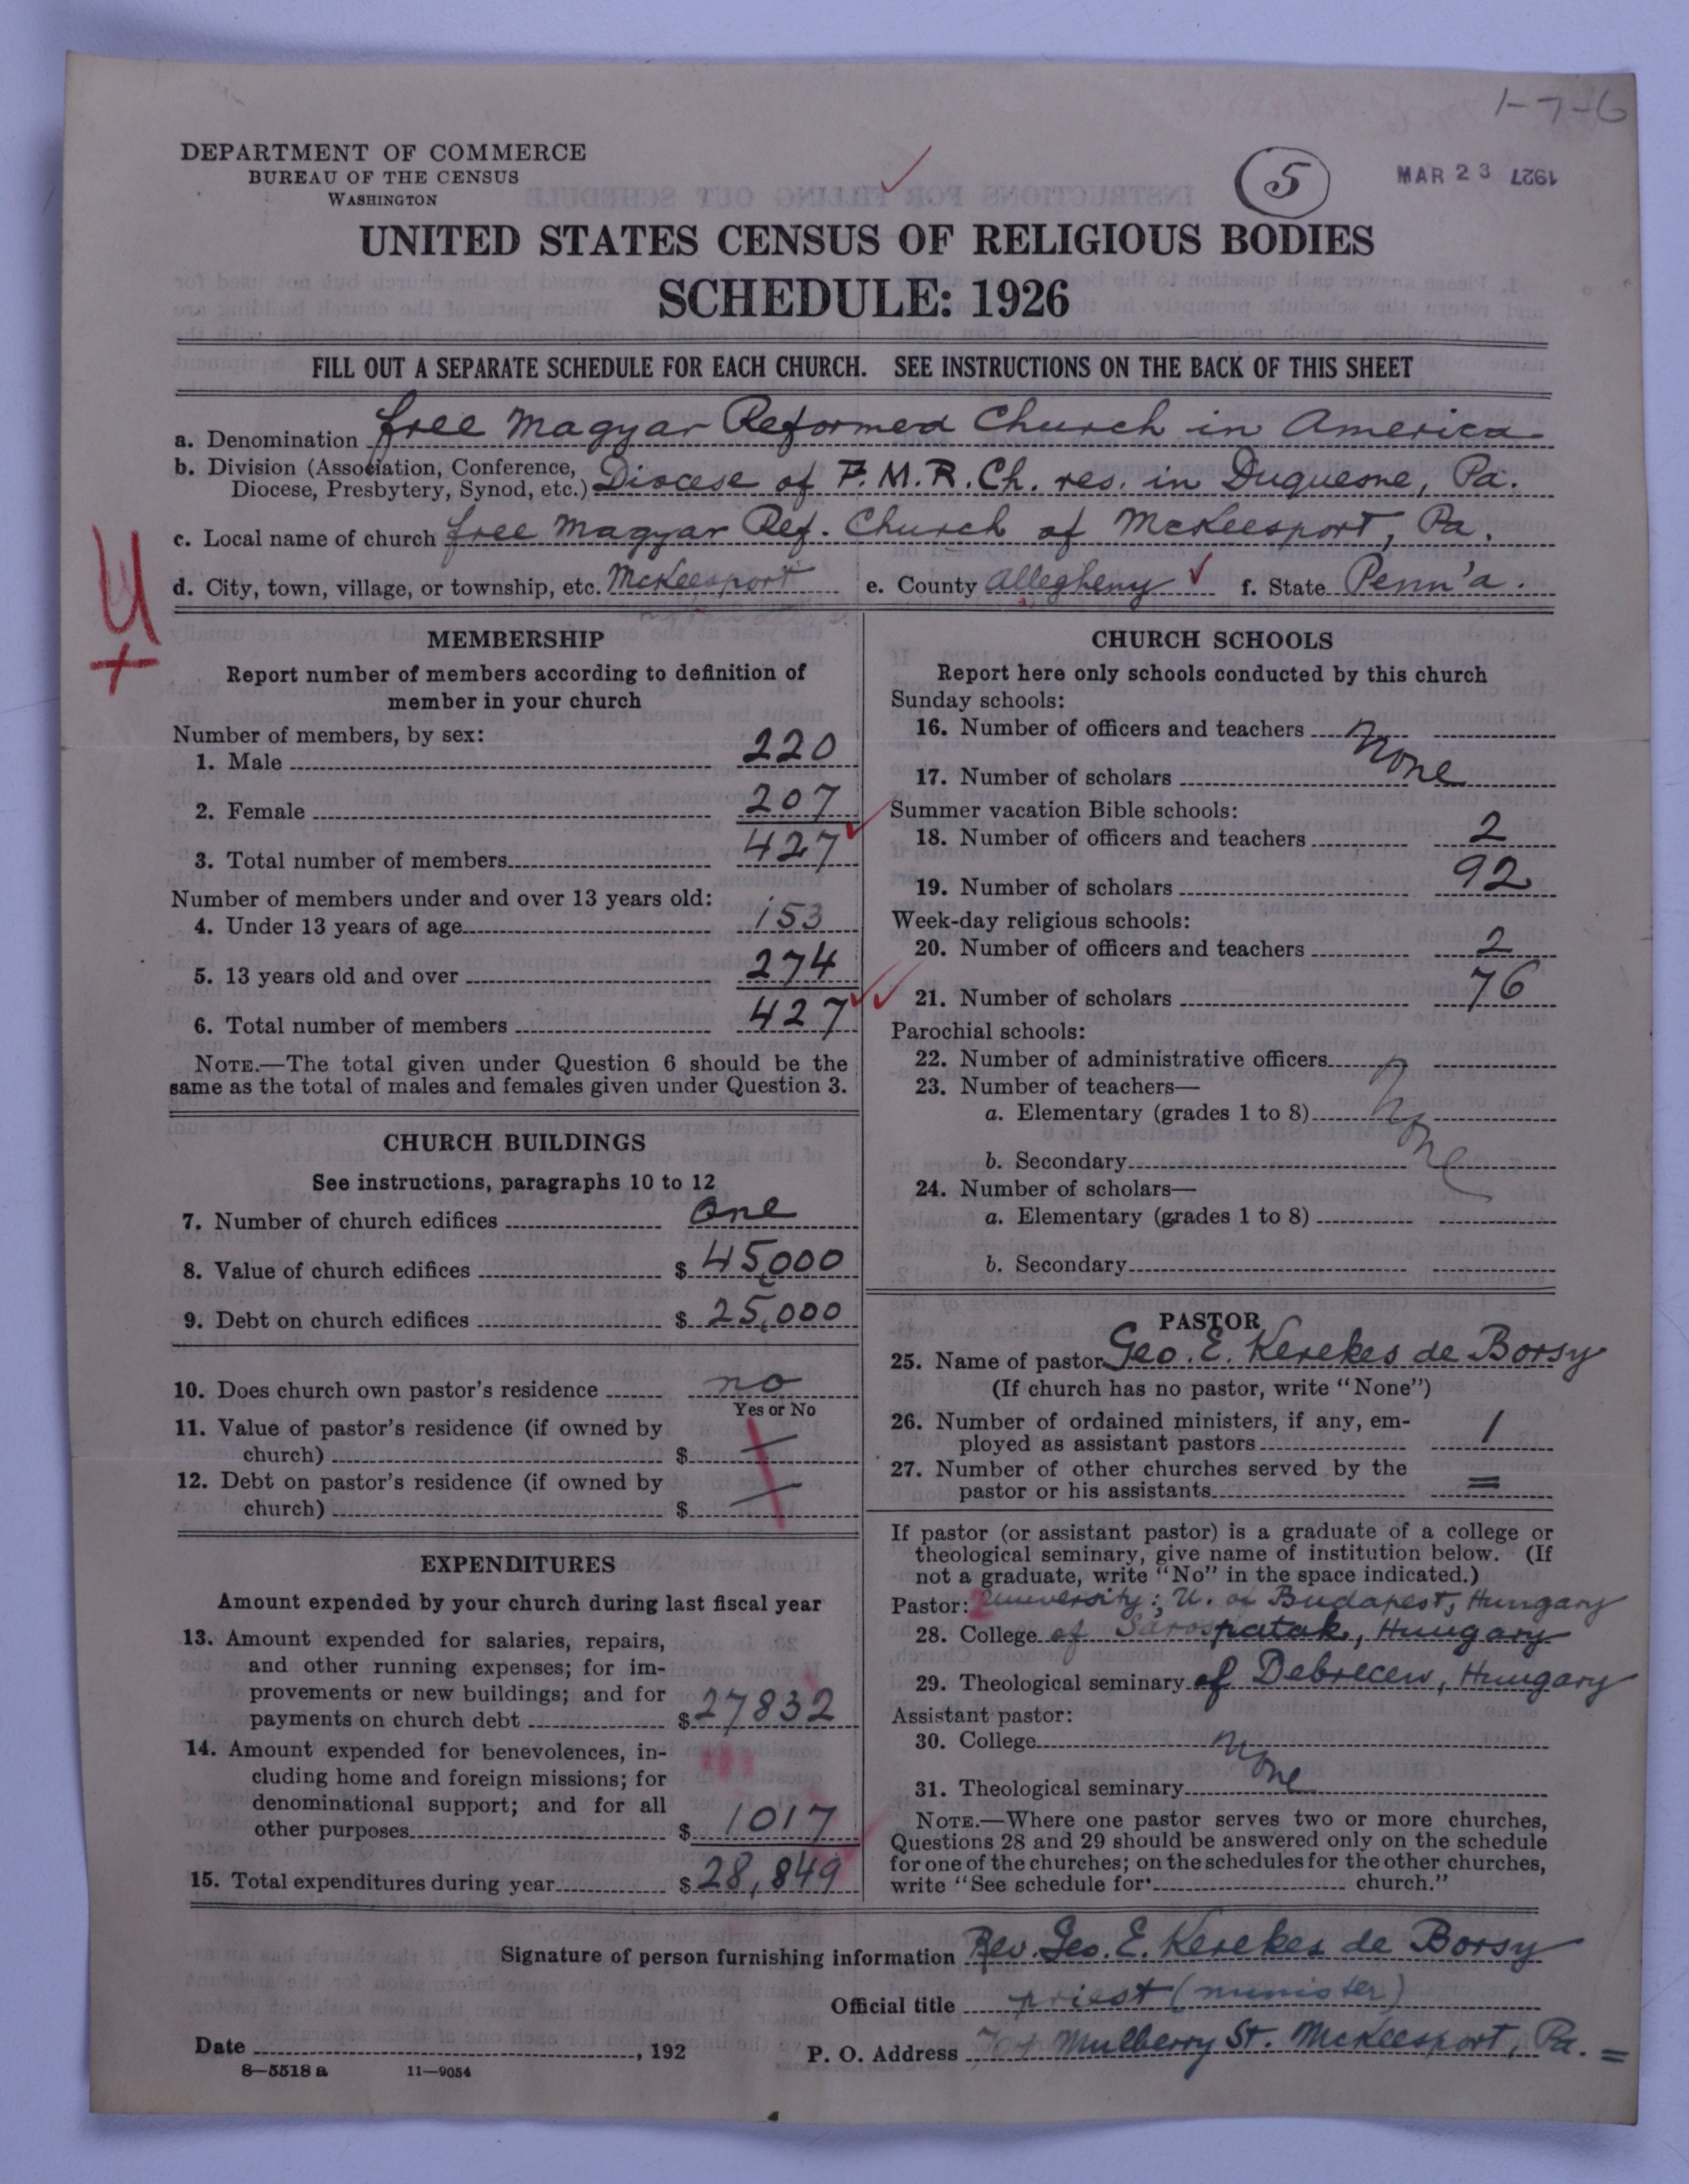 1-7-6
DEPARTMENT OF COMMERCE
BUREAU OF THE CENSUS
WASHINGTON
5
MAR 23 1927
UNITED STATES CENSUS OF RELIGIOUS BODIES
SCHEDULE: 1926
FILL OUT A SEPARATE SCHEDULE FOR EACH CHURCH. SEE INSTRUCTIONS ON THE BACK OF THIS SHEET
a. Denomination free Magyar Reformed Church in America
b. Division (Association, Conference, Diocese of F.M.R.Ch. res. in Duquesne, Pa.
Diocese, Presbytery, Synod, etc.)
c. Local name of church free Magyar Ref. Church of McKeesport, Pa.
d. City, town, village, or township, etc. McKeesport e. County Allegheny f. State Penn'a.
MEMBERSHIP
Report number of members according to definition of
member in your church
Number of members, by sex:
1. Male 220
2. Female 207
3. Total number of members 427
Number of members under and over 13 years old:
4. Under 13 years of age 153
5. 13 years old and over 274
6. Total number of members 427
NOTE.—The total given under Question 6 should be the
same as the total of males and females given under Question 3.
CHURCH BUILDINGS
See instructions, paragraphs 10 to 12
7. Number of church edifices One
8. Value of church edifices $ 45,000
9. Debt on church edifices $ 25,000
10. Does church own pastor's residence no
Yes or No
11. Value of pastor's residence (if owned by
church) $ —
12. Debt on pastor's residence (if owned by
church) $ —
EXPENDITURES
Amount expended by your church during last fiscal year
13. Amount expended for salaries, repairs,
and other running expenses; for im-
provements or new buildings; and for
payments on church debt $ 27832
14. Amount expended for benevolences, in-
cluding home and foreign missions; for
denominational support; and for all
other purposes $ 1017
15. Total expenditures during year $ 28,849
CHURCH SCHOOLS
Report here only schools conducted by this church
Sunday schools:
16. Number of officers and teachers None
17. Number of scholars
Summer vacation Bible schools:
18. Number of officers and teachers 2
19. Number of scholars 92
Week-day religious schools:
20. Number of officers and teachers 2
21. Number of scholars 76
Parochial schools:
22. Number of administrative officers None
23. Number of teachers—
a. Elementary (grades 1 to 8)
b. Secondary
24. Number of scholars—
a. Elementary (grades 1 to 8)
b. Secondary
PASTOR
25. Name of pastor Geo. E. Kerekes de Borsy
(If church has no pastor, write "None")
26. Number of ordained ministers, if any, em-
ployed as assistant pastors 1
27. Number of other churches served by the
pastor or his assistants =
If pastor (or assistant pastor) is a graduate of a college or
theological seminary, give name of institution below. (If
not a graduate, write "No" in the space indicated.)
Pastor: University: U. of Budapest, Hungary
28. College of Sarospatak, Hungary
29. Theological seminary of Debrecen, Hungary
Assistant pastor:
30. College None
31. Theological seminary
NOTE.—Where one pastor serves two or more churches,
Questions 28 and 29 should be answered only on the schedule
for one of the churches; on the schedules for the other churches,
write "See schedule for church."
Signature of person furnishing information Rev. Geo. E. Kerekes de Borsy
Official title priest (minister)
Date , 192 P. O. Address Mulberry St. McKeesport, Pa. =
8—5518 a 11—9054